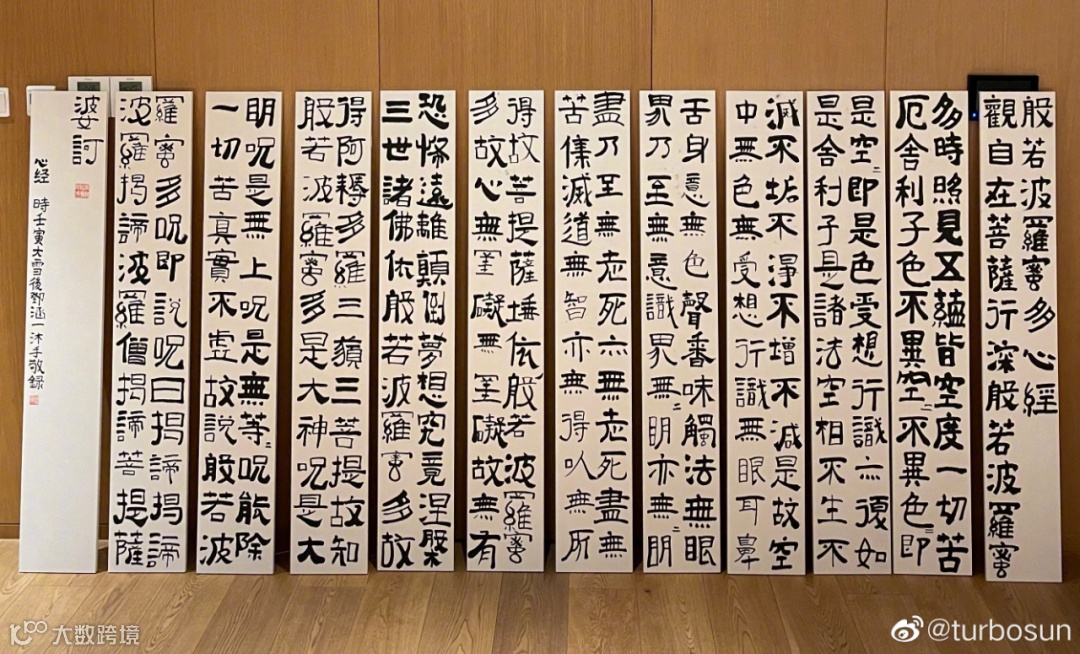 般若波羅蜜多心經
觀自在菩薩行深般若波羅蜜
多時照見五蘊皆空度一切苦
厄舍利子色不異空〻不異色〻即
是空〻即是色受想行識亦復如
是舍利子是諸法空相不生不
滅不垢不淨不增不減是故空
中無色無受想行識無眼耳鼻
舌身意無色聲香味觸法無眼
界乃至無意識界無〻明亦無〻明
盡乃至無老死亦無老死盡無
苦集滅道無智亦無得以無所
得故菩提薩埵依般若波羅蜜
多故心無罣礙無罣礙故無有
恐怖遠離顛倒夢想究竟涅槃
三世諸佛依般若波羅蜜多故
得阿耨多羅三藐三菩提故知
般若波羅蜜多是大神呪是大
明呪是無上呪是無等〻呪能除
一切苦真實不虛故說般若波
羅蜜多呪即說呪曰揭諦揭諦
波羅揭諦波羅僧揭諦菩提薩
婆訶
心经 時壬寅大雪後鄧涵一沐手敬録
大数跨境
@turbosun